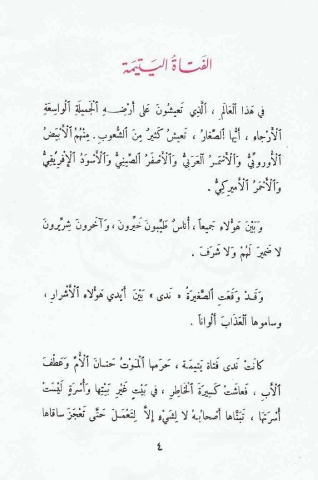 الفَتَاةُ اليَتِيمَة
في هَذَا العَالَمِ ، الَّذِي تَعيشُونَ عَلى أَرْضِهِ الجَميلَةِ الواسِعَةِ
الأَرْجاءِ ، أَيُّها الصِّغَارُ ، تَعيشُ كَثيرٌ مِنَ الشُّعوبِ . مِنْهُمُ الأَبْيَضُ
الأُوروبّيُّ وَالأَسْمَرُ العَرَبِيُّ وَالأَصْفَرُ الصِّينِيُّ وَالأَسْوَدُ الإِفْريقِيُّ
وَالأَحْمَرُ الأَميركِيُّ .
وَبَيْنَ هَؤُلاءِ جَميعاً ، أُناسٌ طَيِّبونَ خَيِّرونَ ، وَآخَرونَ شِرِّيرونَ
لا ضَميرَ لَهُمْ وَلا شَرَفَ .
وَقَدْ وَقَعَتِ الصَّغيرَةُ « نَدى » بَيْنَ أَيْدي هَؤُلاءِ الأَشْرارِ ،
وَساموها العَذَابَ أَلْواناً .
كانَتْ نَدى فَتاةً يَتيمَةً ، حَرَمَها المَوْتُ حَنانَ الأُمِّ وَعَطْفَ
الأَبِ ، فَعاشَتْ كَسيرَةَ الخَاطِرِ ، في بَيْتٍ غَيْرِ بَيْتِها وَأُسْرَةٍ لَيْسَتْ
أُسْرَتَها ، تَبَنَّاها أَصْحابُهُ لا لِشَيْءٍ إِلاَّ لِتَعْمَلَ حَتَّى تَعْجَزَ ساقاها
٤